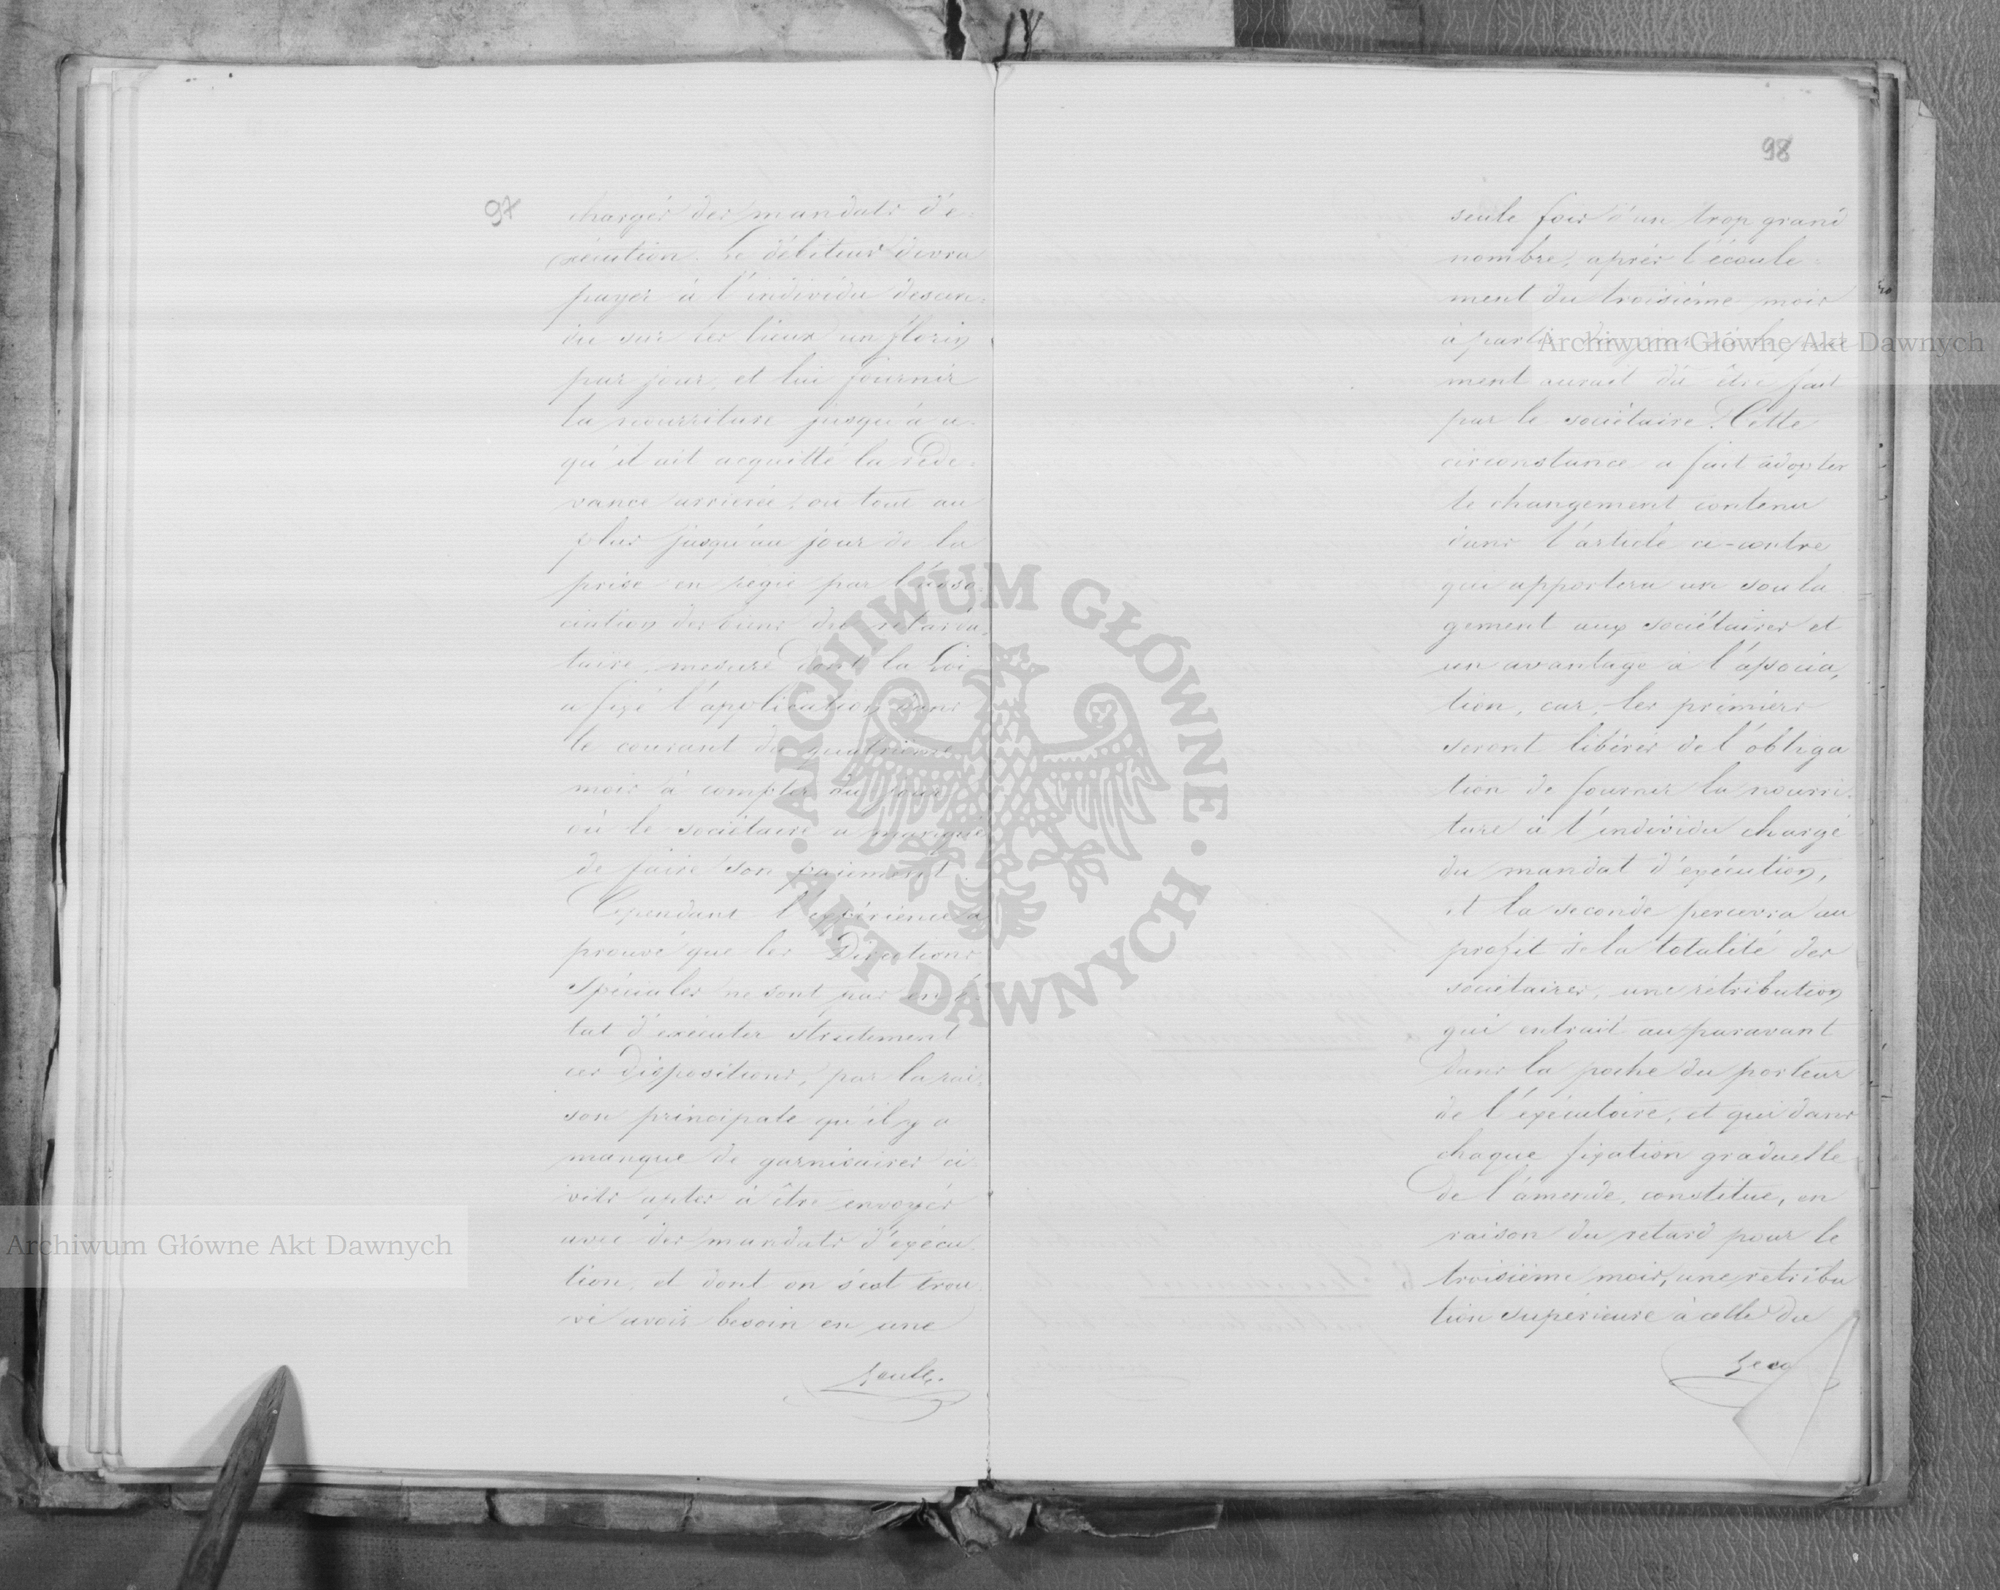 97
chargés des mandats d'é-
xécution. Le débiteur devra
payer à l'individu descen-
du sur les lieux un florin
par jour, et lui fournir
la nourriture jusqu'à ce
qu'il ait acquitté la rede-
vance arriérée, ou tout au
plus jusqu'au jour de la
prise en régie par l'asso-
ciation des biens du retarda-
taire, mesure dont la Loi
a fixé l'application dans
le courant du quatrième
mois à compter du jour
où le sociétaire a manqué
de faire son paiement.
Cependant l'expérience a
prouvé que les Directions
Spéciales ne sont pas en é-
tat d'exécuter strictement
ces dispositions, par la rai-
son principale qu'il y a
manque de garnisaires ci-
vils aptes à être envoyés
avec des mandats d'exécu-
tion, et dont on s'est trou-
vé avoir besoin en une
seule
98
seule fois d'un trop grand
nombre, après l'écoule-
ment du troisième mois
à partir du jour où le paie-
ment aurait dû être fait
par le sociétaire. Cette
circonstance a fait adopter
le changement contenu
dans l'article ci-contre
qui apportera un soula
gement aux sociétaires et
un avantage à l'associa-
tion, car, les premiers
seront libérés de l'obliga
tion de fournir la nourri-
ture à l'individu chargé
du mandat d'exécution,
et la seconde percevra au
profit de la totalité des
sociétaires, une rétribution
qui entrait auparavant
dans la poche du porteur
de l'exécutoire, et qui dans
chaque fixation graduelle
de l'amende, constitue, en
raison du retard pour le
troisième mois, une retribu
tion supérieure à celle du
Archiwum Główne Akt Dawnych
ARCHIWUM GŁÓWNE
AKT DAWNYCH
Archiwum Główne Akt Dawnych